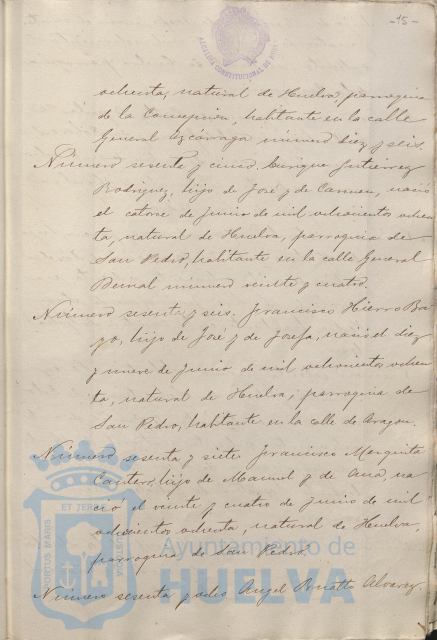 -15-
ALCALDIA CONSTITUCIONAL DE
ochenta, natural de Huelva, parroquia
de la Concepcion, habitante en la calle
General Azcárraga número diez y seis.
Número sesenta y cinco. Enrique Gutierrez
Rodriguez, hijo de José y de Carmen, nació
el catorce de junio de mil ochocientos ochen
ta, natural de Huelva, parroquia de
San Pedro, habitante en la calle General
Bernal número veinte y cuatro.
Número sesenta y seis. Francisco Hierro Ra
yo, hijo de José y de Josefa, nació el diez
y nueve de junio de mil ochocientos ochen
ta, natural de Huelva, parroquia de
San Pedro, habitante en la calle de Aragon.
Número sesenta y siete Francisco Marquita
hijo de Manuel y de Ana, na
ció el veinte y cuatro de junio de mil
ochocientos ochenta, natural de Huelva,
parroquia de San Pedro.
Número sesenta y ocho Angel Alvarez
PORTUS MARIS ET TERRÆ CUSTODIA
Ayuntamiento de
HUELVA